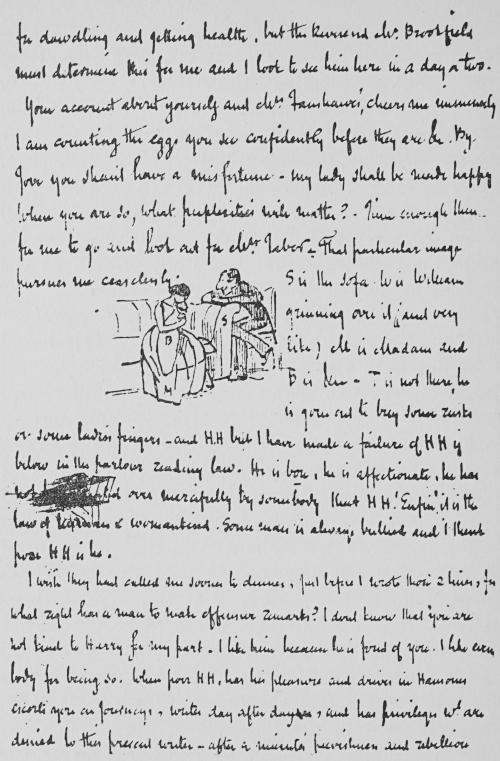 for dawdling and getting health, but the Reverend Mr. Brookfield
must determine this for me and I look to see him here in a day or two.
Your account about yourself and Mrs Fanshawe's, cheers me immensely
I am counting the eggs you see confidently before they are &c. By
Jove you shan't have a misfortune - my lady shall be made happy
When you are so, what perplexities will matter? - Time enough then
for me to go and look out for Mrs Tabor - That particular image
pursues me ceaselessly.
S is the Sofa. W is William
grinning over it (and very
like) M is Madam and
B is
T is not there, he
is gone out to buy some rusks
or some ladies fingers - and HH but I have made a failure of HH is
below in the parlour reading law. He is he is affectionate, he has
not over mercifully by somebody that HH! Enfin, it is the
law of & womankind. Some man is always bullied and I think
poor HH is he.
I wish they had called me sooner to dinner, just before I wrote those 2 lines, for
what right has a man to make offensive remarks? I dont know that you are
not kind to Harry for my part. I like him because he is fond of you. I like every
body for being so. When poor HH, has his pleasure and drives in Hansoms
escorts you on journeys, writes day after day, and has privileges wh are
denied to this present writer - after a minutes peevishness and rebellion
B
S
M